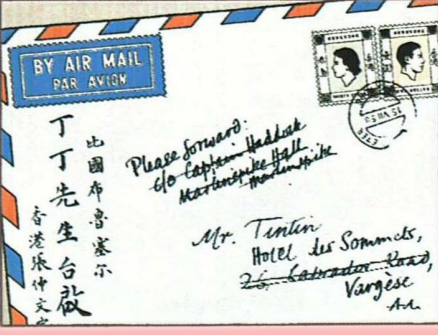 BY AIR MAIL
PAR AVION
Please forward:
c/o Captain Haddock
Marlinspike Hall
Marlinspike
Mr. Tintin
Hotel des Sommets,
26 Labrador Road,
Vargese
比國布魯塞尔
丁丁先生台啟
香港張仲文